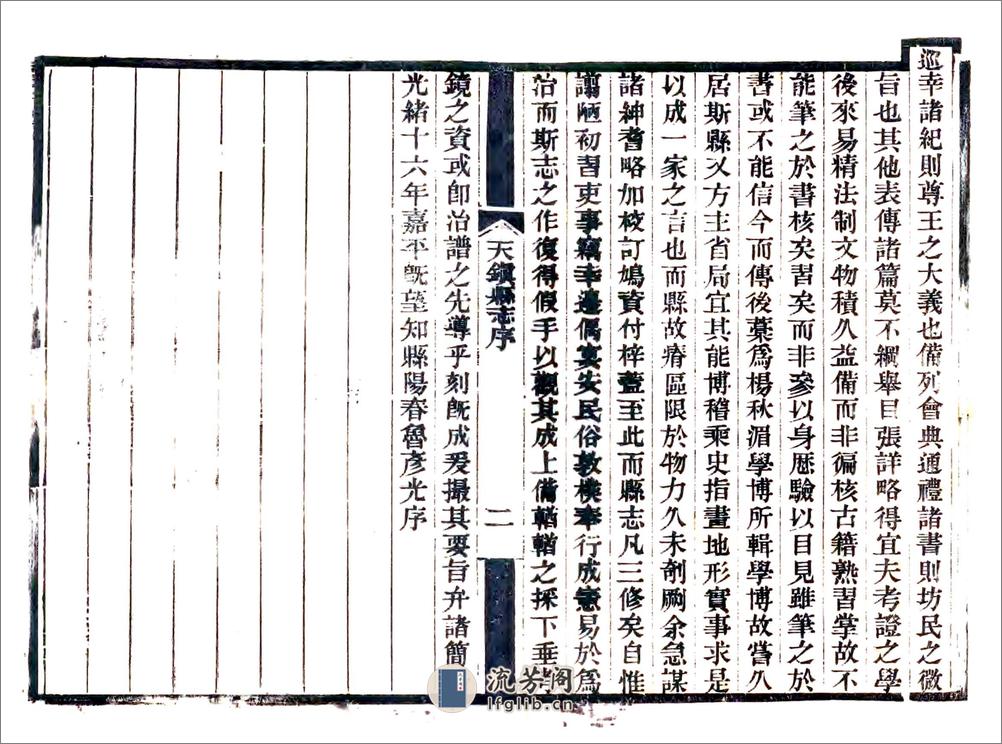 巡幸諸紀則尊王之大義也備列會典通禮諸書則坊民之微
旨也其他表傳諸篇莫不綱舉目張詳略得宜夫考證之學
後來易精法制文物積久益備而非徧核古籍熟習掌故不
能筆之於書核矣習矣而非參以身歷驗以目見雖筆之於
書或不能信今而傳後藁爲楊秋湄學博所輯學博故嘗久
居斯縣又方主省局宜其能博稽乘史指畫地形實事求是
以成一家之言也而縣故瘠區限於物力久未剞劂余急謀
諸紳耆略加校訂鳩資付梓蓋至此而縣志凡三修矣自惟
譾陋初習吏事竊幸邊偶宴安民俗敦樸奉行成憲易於爲
治而斯志之作復得假手以觀其成上備輶輶之採下垂
天鎮縣志序
二
鏡之資或卽治譜之先導乎刻旣成爰撮其要旨弁諸簡
光緒十六年嘉平旣望知縣陽春魯彥光序
流芳阁
lfglib.cn